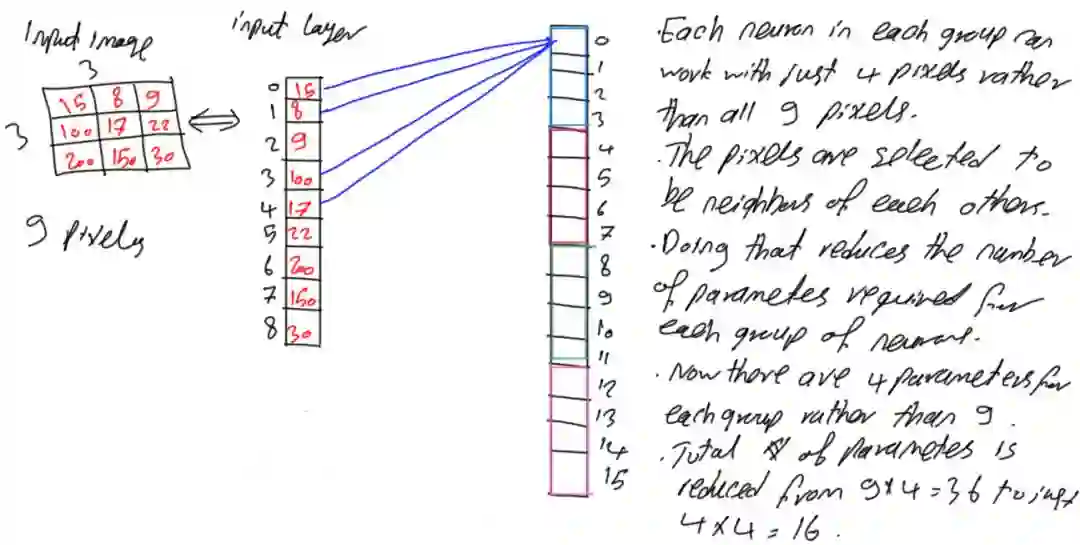 Input image
3
3
15 8 9
100 17 22
200 150 30
9 pixels
input layer
0 15
1 8
2 9
3 100
4 17
5 22
6 200
7 150
8 30
0
1
2
3
4
5
6
7
8
9
10
11
12
13
14
15
. Each neuron in each group can
work with just 4 pixels rather
than all 9 pixels.
. The pixels are selected to
be neighbors of each others.
. Doing that reduces the number
of parameters required for
each group of neurons.
. Now there are 4 parameters for
each group rather than 9.
. Total # of parameters is
reduced from 9*4=36 to just
4x4=16.